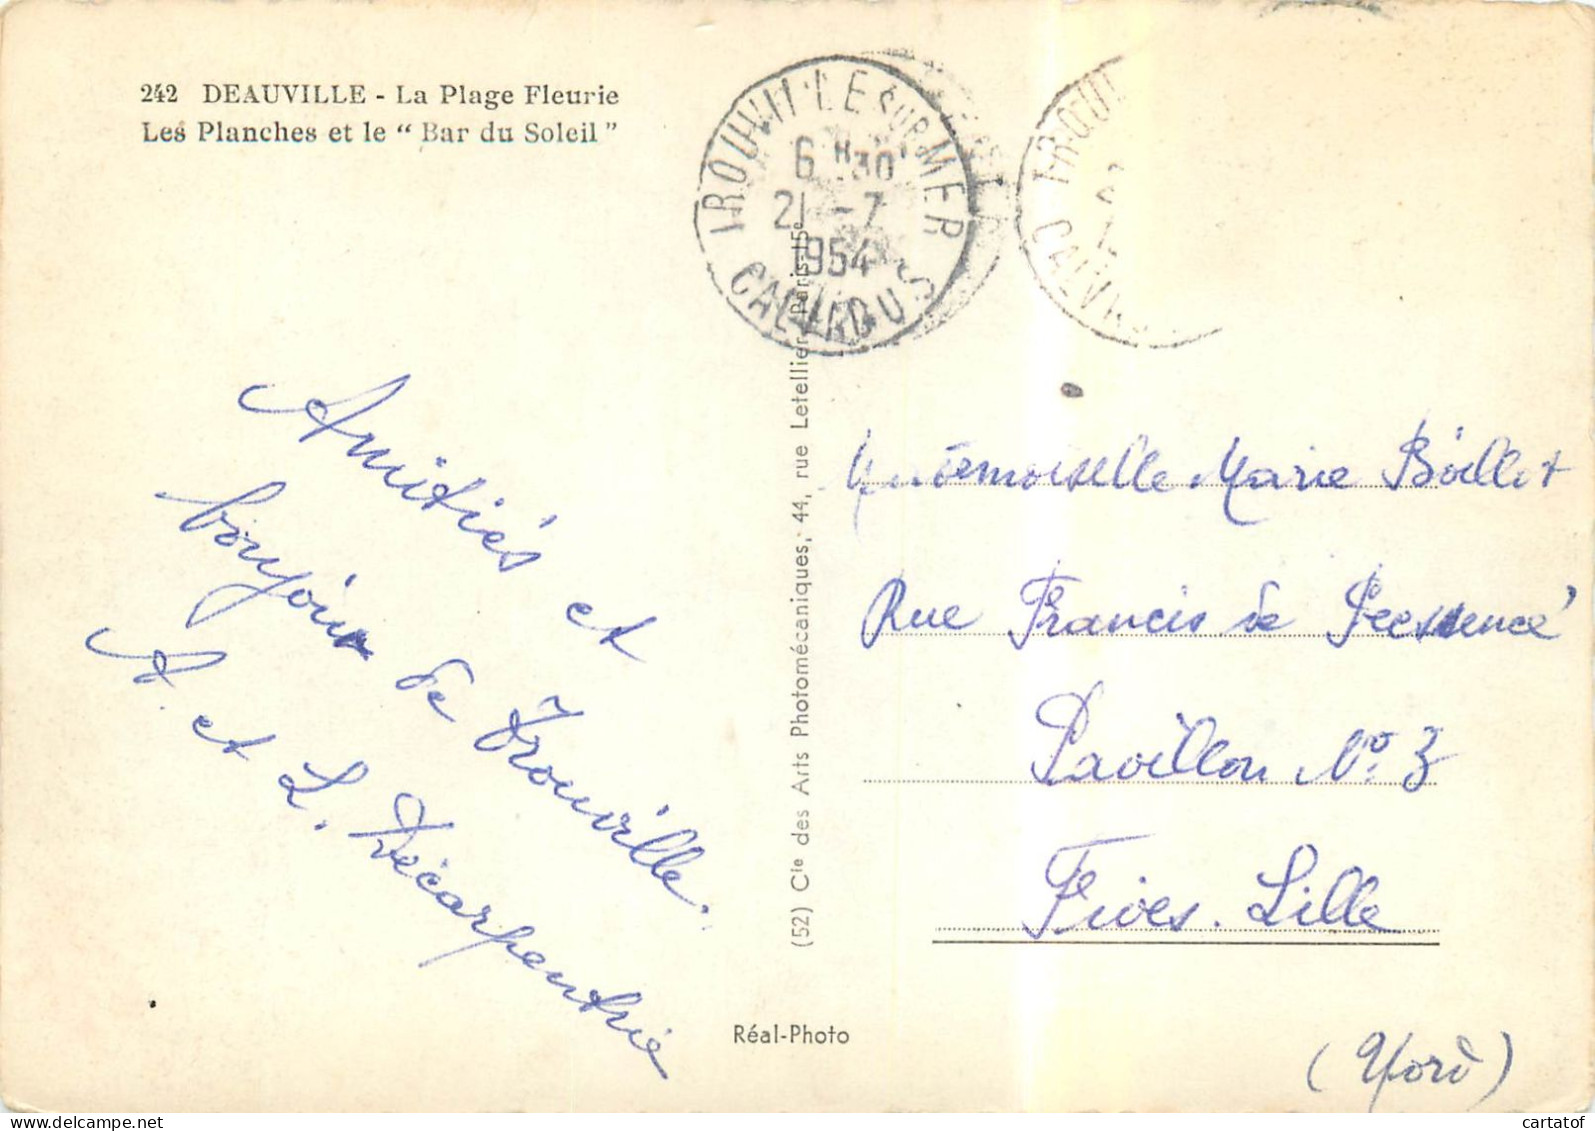 242 DEAUVILLE - La Plage Fleurie
Les Planches et le “ Bar du Soleil ”
TROUVILLE SUR MER
6 H 30
21 -7
1954
CALVADOS
TROU
CALVA
Amitiés et
bonjour de Trouville.
A. et L. Décarpentrie
(52) Cie des Arts Photomécaniques, 44, rue Letellier, Paris-15e
Réal-Photo
Mademoiselle Marie Boillot
Rue Francis de Pressensé
Pavillon No. 3
Fives. Lille
(Nord)
cartatof